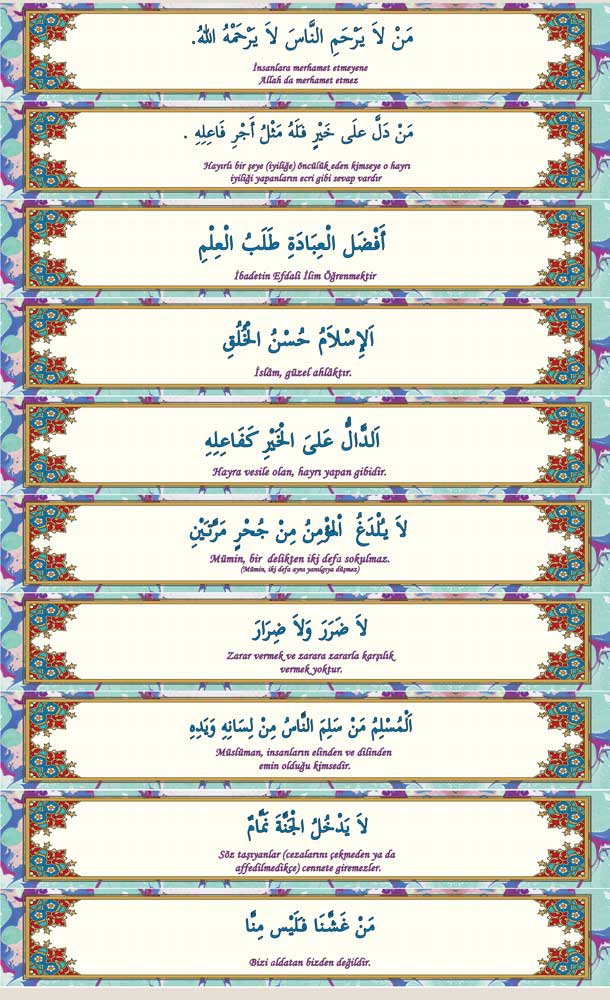 مَنْ لاَ يَرْحَمِ النَّاسَ لاَ يَرْحَمْهُ اللهُ.
İnsanlara merhamet etmeyene
Allah da merhamet etmez
مَنْ دَلَّ علَى خَيْرٍ فَلَهُ مَثْلُ أَجْرِ فَاعِلِهِ .
Hayırlı bir şeye (iyiliğe) öncülük eden kimseye o hayrı
iyiliği yapanların ecri gibi sevap vardır
أَفْضَل الْعِبَادَةِ طَلَبُ الْعِلْمِ
İbadetin Efdali İlim Öğrenmektir
اَلإِسْلاَمُ حُسْنُ الْخُلُقِ
İslâm, güzel ahlâktır.
اَلدَّالُّ عَلىَ الْخَيْرِ كَفَاعِلِهِ
Hayra vesile olan, hayrı yapan gibidir.
لاَ يُلْدَغُ الْمُؤْمِنُ مِنْ جُحْرٍ مَرَّتَيْنِ
Mümin, bir delikten iki defa sokulmaz.
(Mümin, iki defa aynı yanılgıya düşmez)
لاَ ضَرَرَ وَلاَ ضِرَارَ
Zarar vermek ve zarara zararla karşılık
vermek yoktur.
اَلْمُسْلِمُ مَنْ سَلِمَ النَّاسُ مِنْ لِسَانِهِ وَيَدِهِ
Müslüman, insanların elinden ve dilinden
emin olduğu kimsedir.
لاَ يَدْخُلُ الْجَنَّةَ نَمَّامٌ
Söz taşıyanlar (cezalarını çekmeden ya da
affedilmedikçe) cennete giremezler.
مَنْ غَشَّنَا فَلَيْس مِنَّا
Bizi aldatan bizden değildir.